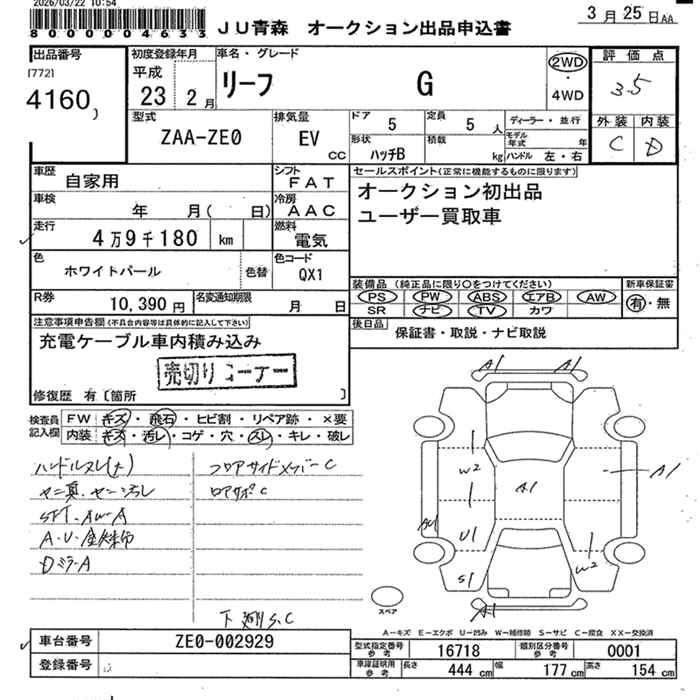 2026/03/22 10:54
8000004633
JU青森 オークション出品申込書
3月25日AA
出品番号
[772]
4160
初度登録年月
平成
23 2月
車名・グレード
リーフ G
2WD
・
4WD
評価点
3.5
外装 内装
C D
型式
ZAA-ZE0
排気量
EV
cc
ドア
5
定員
5 人
形状
ハッチB
積載
kg
ディーラー・並行
モデル年式 年
ハンドル 左・右
車歴
自家用
シフト
FAT
車検
年 月( 日)
冷房
AAC
走行
4万9千180 km
燃料
電気
色
ホワイトパール
色替
色コード
QX1
R券
10,390円
名変通知期限
月 日
セールスポイント(正常に機能するものに限ります)
オークション初出品
ユーザー買取車
装備品 (純正品に限り○をつけてください)
PS PW ABS エアB AW
SR ナビ TV カワ
新車保証書
有・無
後日品
保証書・取説・ナビ取説
注意事項申告欄(不具合内容等は具体的に記入して下さい)
充電ケーブル車内積み込み
売切りコーナー
修復歴 有〔箇所 〕
検査員記入欄
FW キズ・飛石・ヒビ割・リペア跡・×要
内装 キズ・汚レ・コゲ・穴・スレ・キレ・破レ
ハンドルスレ(大)
フロアサイドメンバーC
ロアサポC
Dミラ-A
A1 A1
W2
A1
A1
U1
S1
W2
A1
スペア
A-キズ E-エクボ U-凹み W-補修跡 S-サビ C-腐食 XX-交換済
車台番号
ZE0-002929
登録番号
型式指定番号
参考
16718
類別区分番号
参考
0001
車庫証明用
参考
長さ 444 cm
幅 177 cm
高さ 154 cm